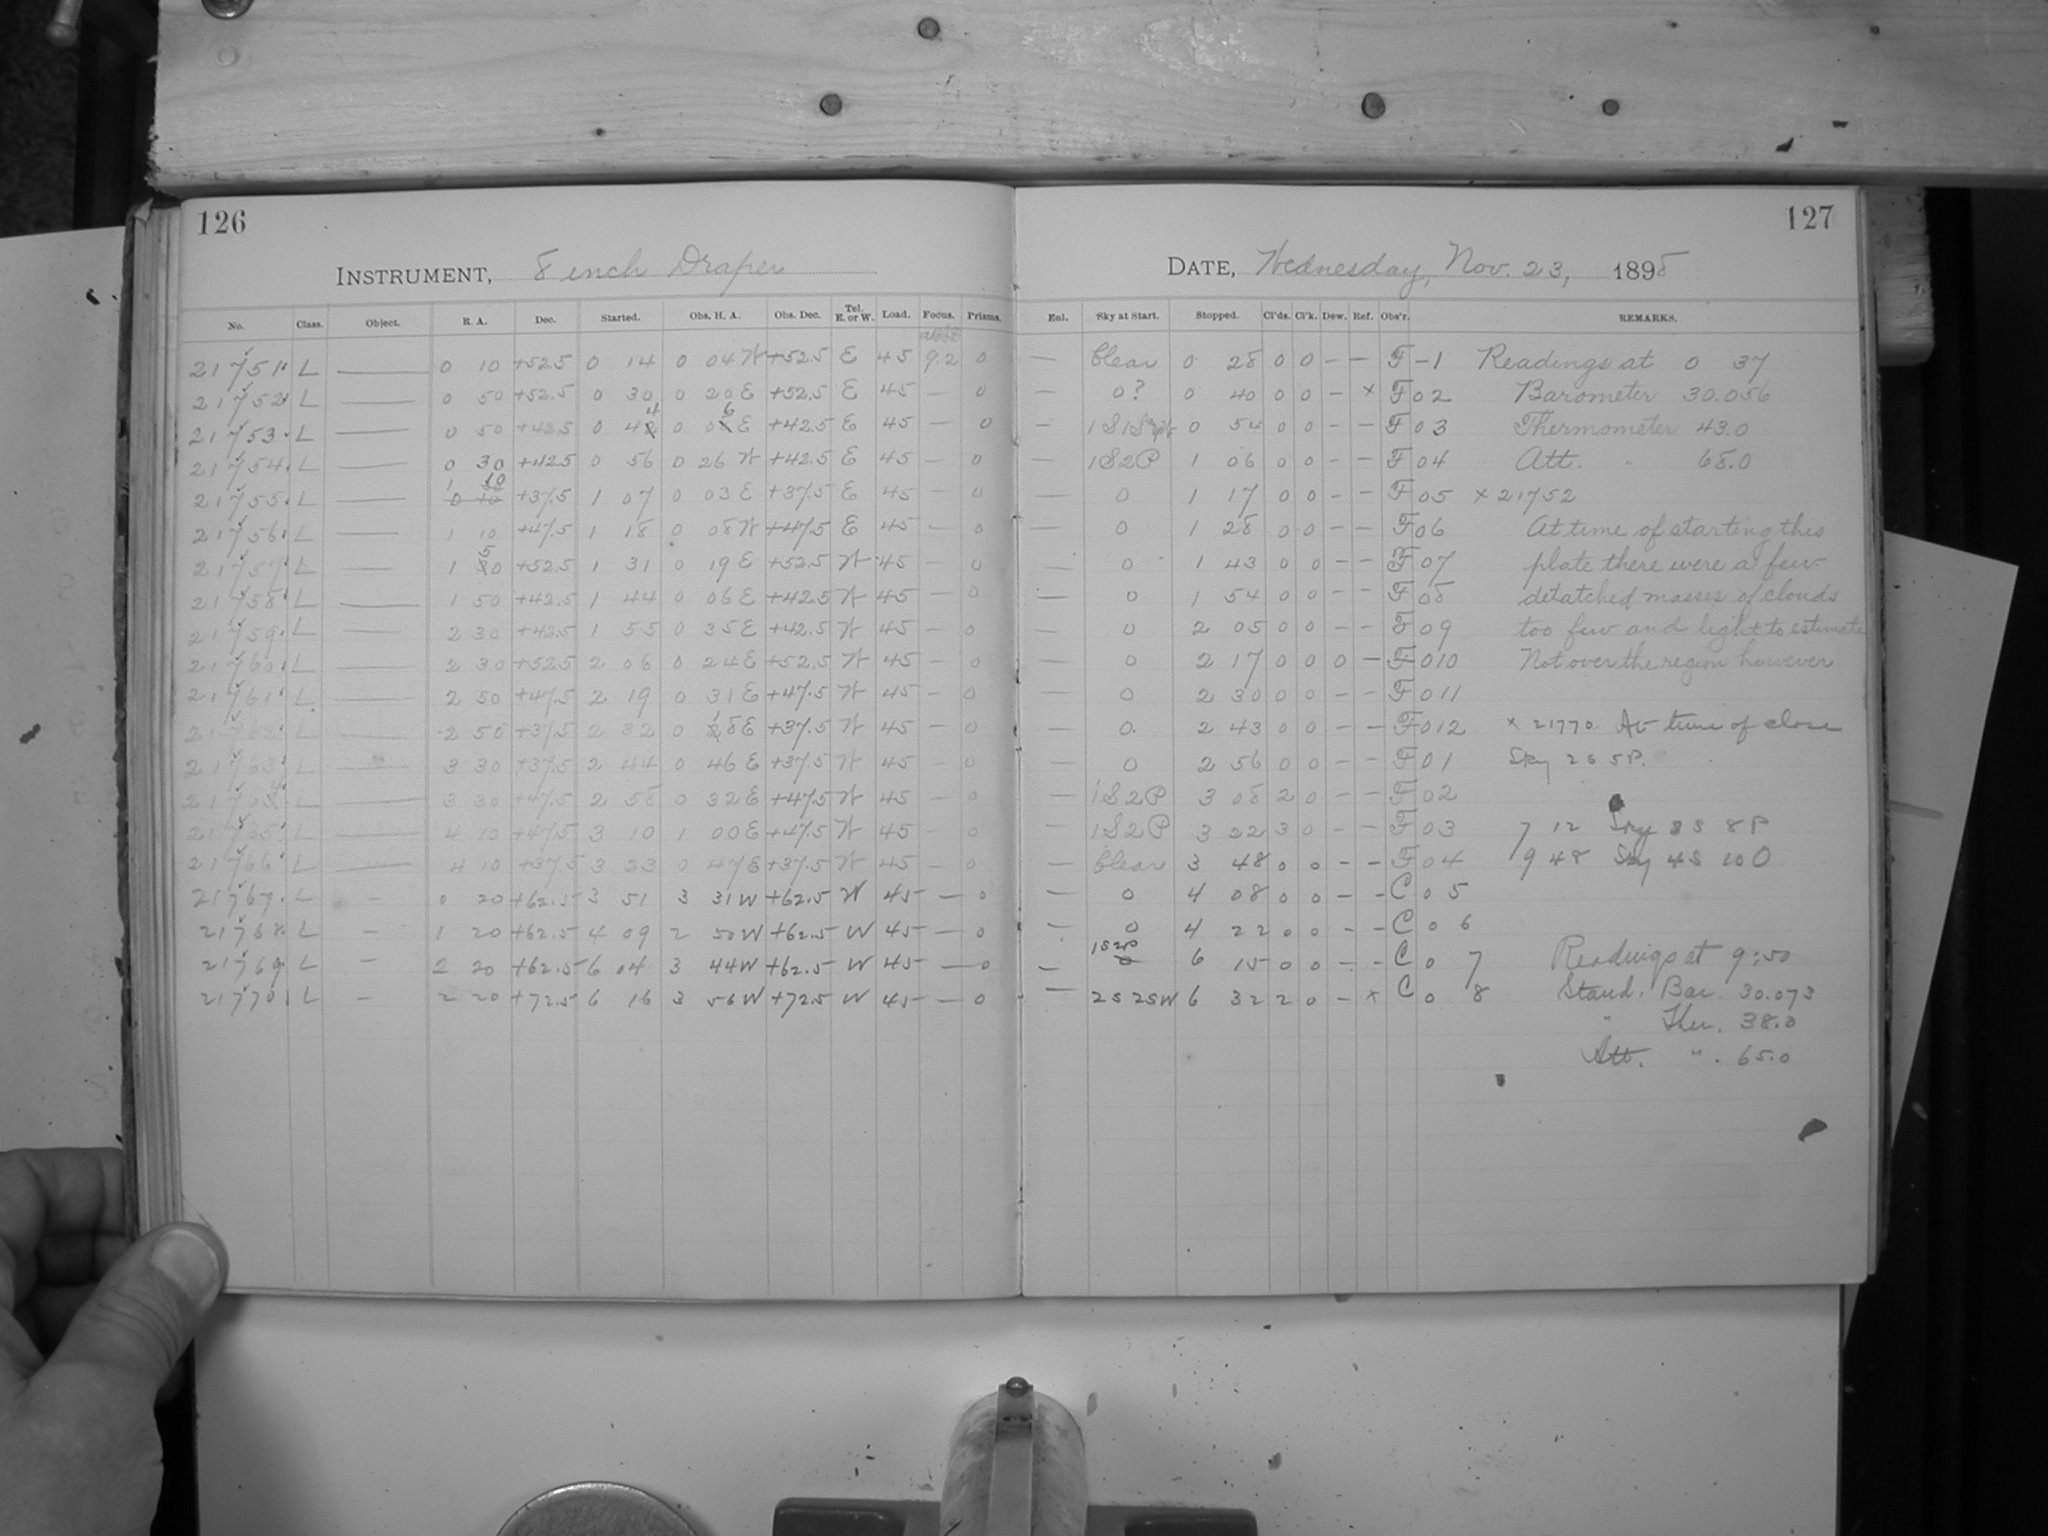 126
INSTRUMENT, 8 inch Draper
No. Class. Object. R. A. Dec. Started. Obs. H. A. Obs. Dec. Tel. E. or W. Load. Focus. Prisms.
21751 L — 0 10 +52.5 0 14 0 04 W +52.5 E 45 9.2 0
21752 L — 0 50 +52.5 0 30 0 20 E +52.5 E 45 — 0
21753 L — 0 50 +42.5 0 44 0 06 E +42.5 E 45 — 0
21754 L — 0 30 +42.5 0 56 0 26 W +42.5 E 45 — 0
21755 L — 1 10 +37.5 1 07 0 03 E +37.5 E 45 — 0
21756 L — 1 10 +47.5 1 18 0 08 W +47.5 E 45 — 0
21757 L — 1 50 +52.5 1 31 0 19 E +52.5 W 45 — 0
21758 L — 1 50 +42.5 1 44 0 06 E +42.5 W 45 — 0
21759 L — 2 30 +42.5 1 55 0 35 E +42.5 W 45 — 0
21760 L — 2 30 +52.5 2 06 0 24 E +52.5 W 45 — 0
21761 L — 2 50 +47.5 2 19 0 31 E +47.5 W 45 — 0
21762 L — 2 50 +37.5 2 32 0 18 E +37.5 W 45 — 0
21763 L — 3 30 +37.5 2 44 0 46 E +37.5 W 45 — 0
21764 L — 3 30 +47.5 2 58 0 32 E +47.5 W 45 — 0
21765 L — 4 10 +47.5 3 10 1 00 E +47.5 W 45 — 0
21766 L — 4 10 +37.5 3 23 0 47 E +37.5 W 45 — 0
21767 L — 0 20 +62.5 3 51 3 31 W +62.5 W 45 — 0
21768 L — 1 20 +62.5 4 09 2 50 W +62.5 W 45 — 0
21769 L — 2 20 +62.5 6 04 3 44 W +62.5 W 45 — 0
21770 L — 2 20 +72.5 6 16 3 56 W +72.5 W 45 — 0
127
DATE, Wednesday, Nov. 23, 1898
Enl. Sky at Start. Stopped. Cl'ds. Cl'k. Dew. Ref. Obs'r. REMARKS.
— Clear 0 28 0 0 — — F -1 Readings at 0 37
— 0? 0 40 0 0 — x F 02 Barometer 30.056
— 0 54 0 0 — — F 03 Thermometer 43.0
— 1S2P 1 06 0 0 — — F 04 Att. " 68.0
— 0 1 17 0 0 — — F 05 x 21752
— 0 1 28 0 0 — — F 06 At time of starting this
— 0 1 43 0 0 — — F 07 plate there were a few
— 0 1 54 0 0 — — F 08 detatched masses of clouds
— 0 2 05 0 0 — — F 09 too few and light to estimate
— 0 2 17 0 0 0 — F 010 Not over the region however
— 0 2 30 0 0 — — F 011
— 0 2 43 0 0 — — F 012 x 21770. At time of close
— 0 2 56 0 0 — — F 01 Sky 2S 5P.
1S2P 3 08 2 0 — — F 02
1S2P 3 22 3 0 — — F 03 7 12 Sky 8S 8P
Clear 3 48 0 0 — — F 04 9 48 Sky 4S 10 O
— 0 4 08 0 0 — — C 0 5
— 0 4 22 0 0 — — C 0 6
— 1S2P 0 6 15 0 0 — — C 0 7 Readings at 9:50
— 2S 2SW 6 32 2 0 — x C 0 8 Stand. Bar. 30.073
" Ther. 38.0
Att. " . 65.0